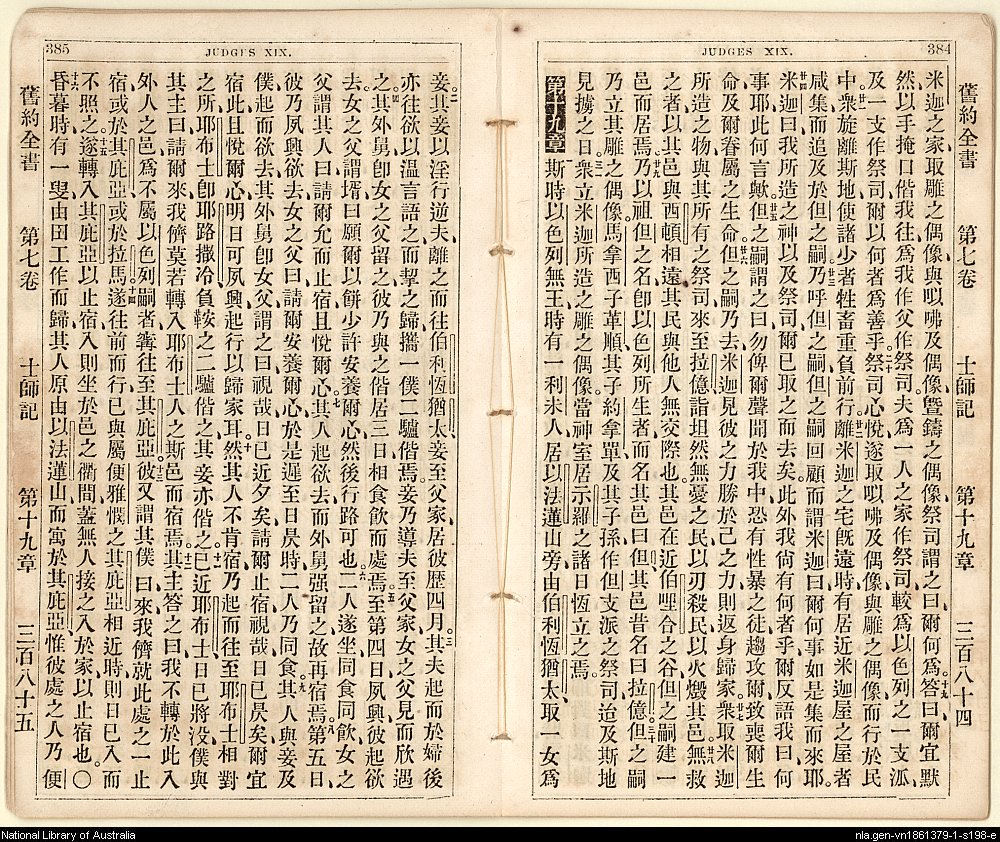 384
JUDGES XIX.
舊約全書 第七卷 士師記 第十九章 三百八十四
米迦之家取雕之偶像與㕽咈及偶像曁鑄之偶像祭司謂之曰爾何爲答曰爾宜默
然以手掩口偕我往爲我作父作祭司夫爲一人之家作祭司較爲以色列之一支派
及一支作祭司爾以何者爲善乎祭司心悅遂取㕽咈及偶像與雕之偶像而行於民
中衆旋離斯地使諸少者牲畜重負前行離米迦之宅旣遠時有居近米迦屋之屋者
咸集而追及於但之嗣乃呼但之嗣但之嗣回顧而謂米迦曰爾何事如是集而來耶
米迦曰我所造之神以及祭司爾已取之而去矣此外我尚有何者乎爾反語我曰何
事耶此何言歟但之嗣謂之曰勿俾爾聲聞於我中恐有性暴之徒趨攻爾致喪爾生
命及爾眷屬之生命但之嗣乃去米迦見彼之力勝於己之力則返身歸家衆取米迦
所造之物與其所有之祭司來至拉億詣坦然無憂之民以刃殺民以火燬其邑無救
之者以其邑與西頓相遠其民與他人無交際也其邑在近伯哩合之谷但之嗣建一
邑而居焉乃以祖但之名卽以色列所生者而名其邑曰但其邑昔名曰拉億但之嗣
乃立其雕之偶像馬拿西子革順其子約拿單及其子孫作但支派之祭司迨及斯地
見擄之日衆立米迦所造之雕之偶像當神室居示羅之諸日恆立之焉
第十九章 斯時以色列無王時有一利未人居以法蓮山旁由伯利恆猶太取一女爲
385
JUDGES XIX.
妾其妾以淫行逆夫離之而往伯利恆猶太妾至父家居彼歷四月其夫起而於婦後
亦往欲以溫言語之而挈之歸攜一僕二驢偕焉妾乃導夫至父家女之父見而欣遇
之其外舅卽女之父留之彼乃與之偕居三日相食飲而處焉至第四日夙興彼起欲
去女之父謂壻曰願爾以餅少許安養爾心然後行路可也二人遂坐同食同飲女之
父謂其人曰請爾允而止宿且悅爾心其人起欲去而外舅强留之故再宿焉第五日
彼乃夙興欲去女之父曰請爾安養爾心於是遲至日昃時二人乃同食其人與妾及
僕起而欲去其外舅卽女父謂之曰視哉日已近夕矣請爾止宿視哉日已昃矣爾宜
宿此且悅爾心明日可夙興起行以歸家耳然其人不肯宿乃起而往至耶布士相對
之所耶布士卽耶路撒冷負鞍之二驢偕之其妾亦偕之已近耶布士日已將没僕與
其主曰請爾來我儕莫若轉入耶布士人之斯邑而宿焉其主答之曰我不轉於此入
外人之邑爲不屬以色列嗣者寗往至其庇亞彼又謂其僕曰來我儕就此處之一止
宿或於其庇亞或於拉馬遂往前而行已與屬便雅憫之其庇亞相近時則日已入而
不照之遂轉入其庇亞以止宿入則坐於邑之衢間蓋無人接之入於家以止宿也〇
昏暮時有一叟由田工作而歸其人原由以法蓮山而寓於其庇亞惟彼處之人乃便
舊約全書 第七卷 士師記 第十九章 三百八十五
National Library of Australia
nla.gen-vn1861379-1-s198-e